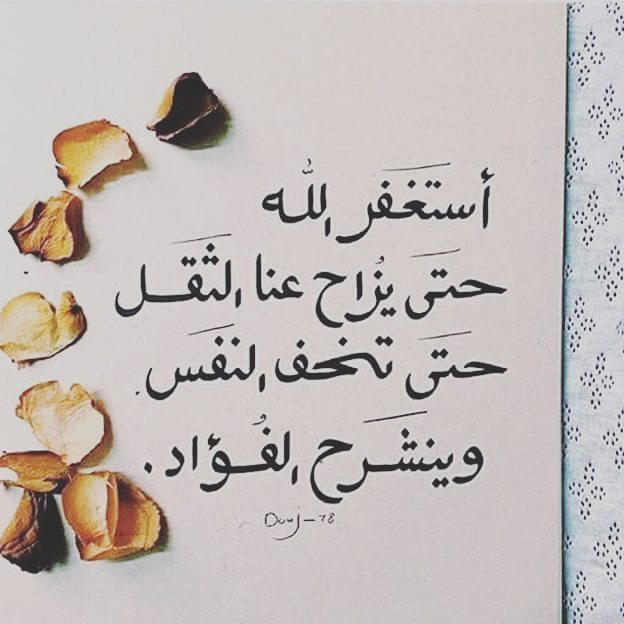 أستغفر الله
حتى يُزاح عنا الثقل
حتى تخف النفس
وينشرح الفُؤاد.
Douj-78